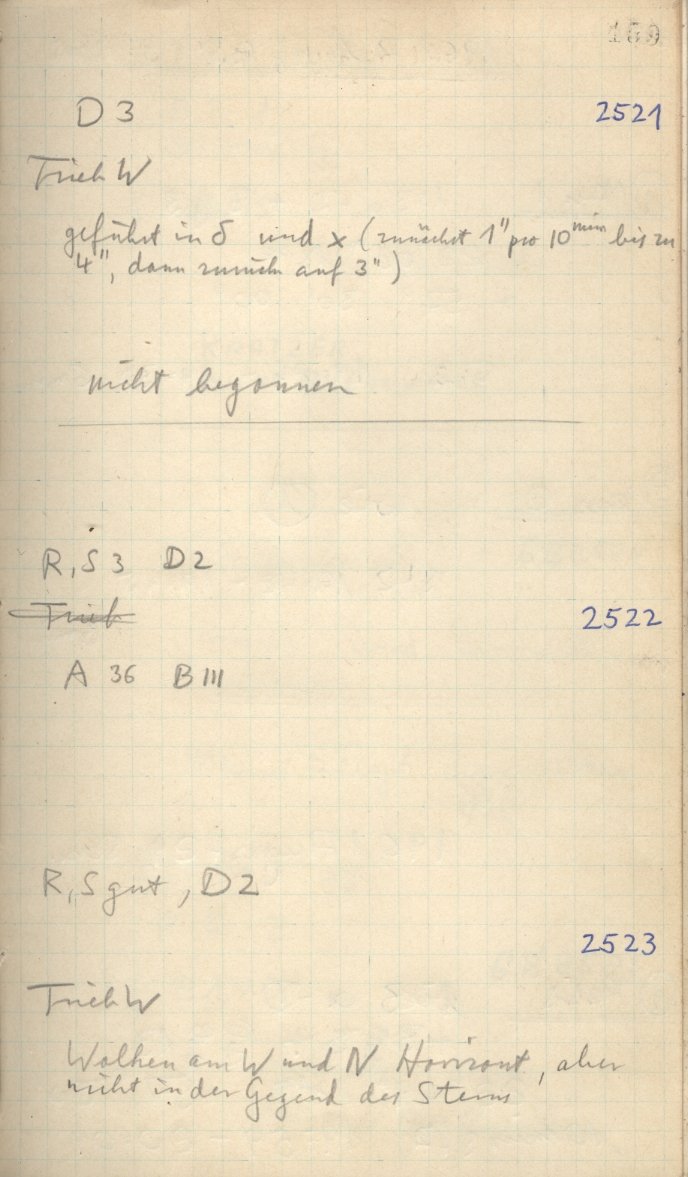 159
D 3 2521
Trieb W
geführt in δ und x (zunächst 1" pro 10 min bis zu
4", dann zurück auf 3")
nicht begonnen
R, S 3 D 2
Trieb 2522
A 36 B III
R, S gut, D 2
2523
Trieb W
Wolken am W und N Horizont, aber
nicht in der Gegend des Sterns